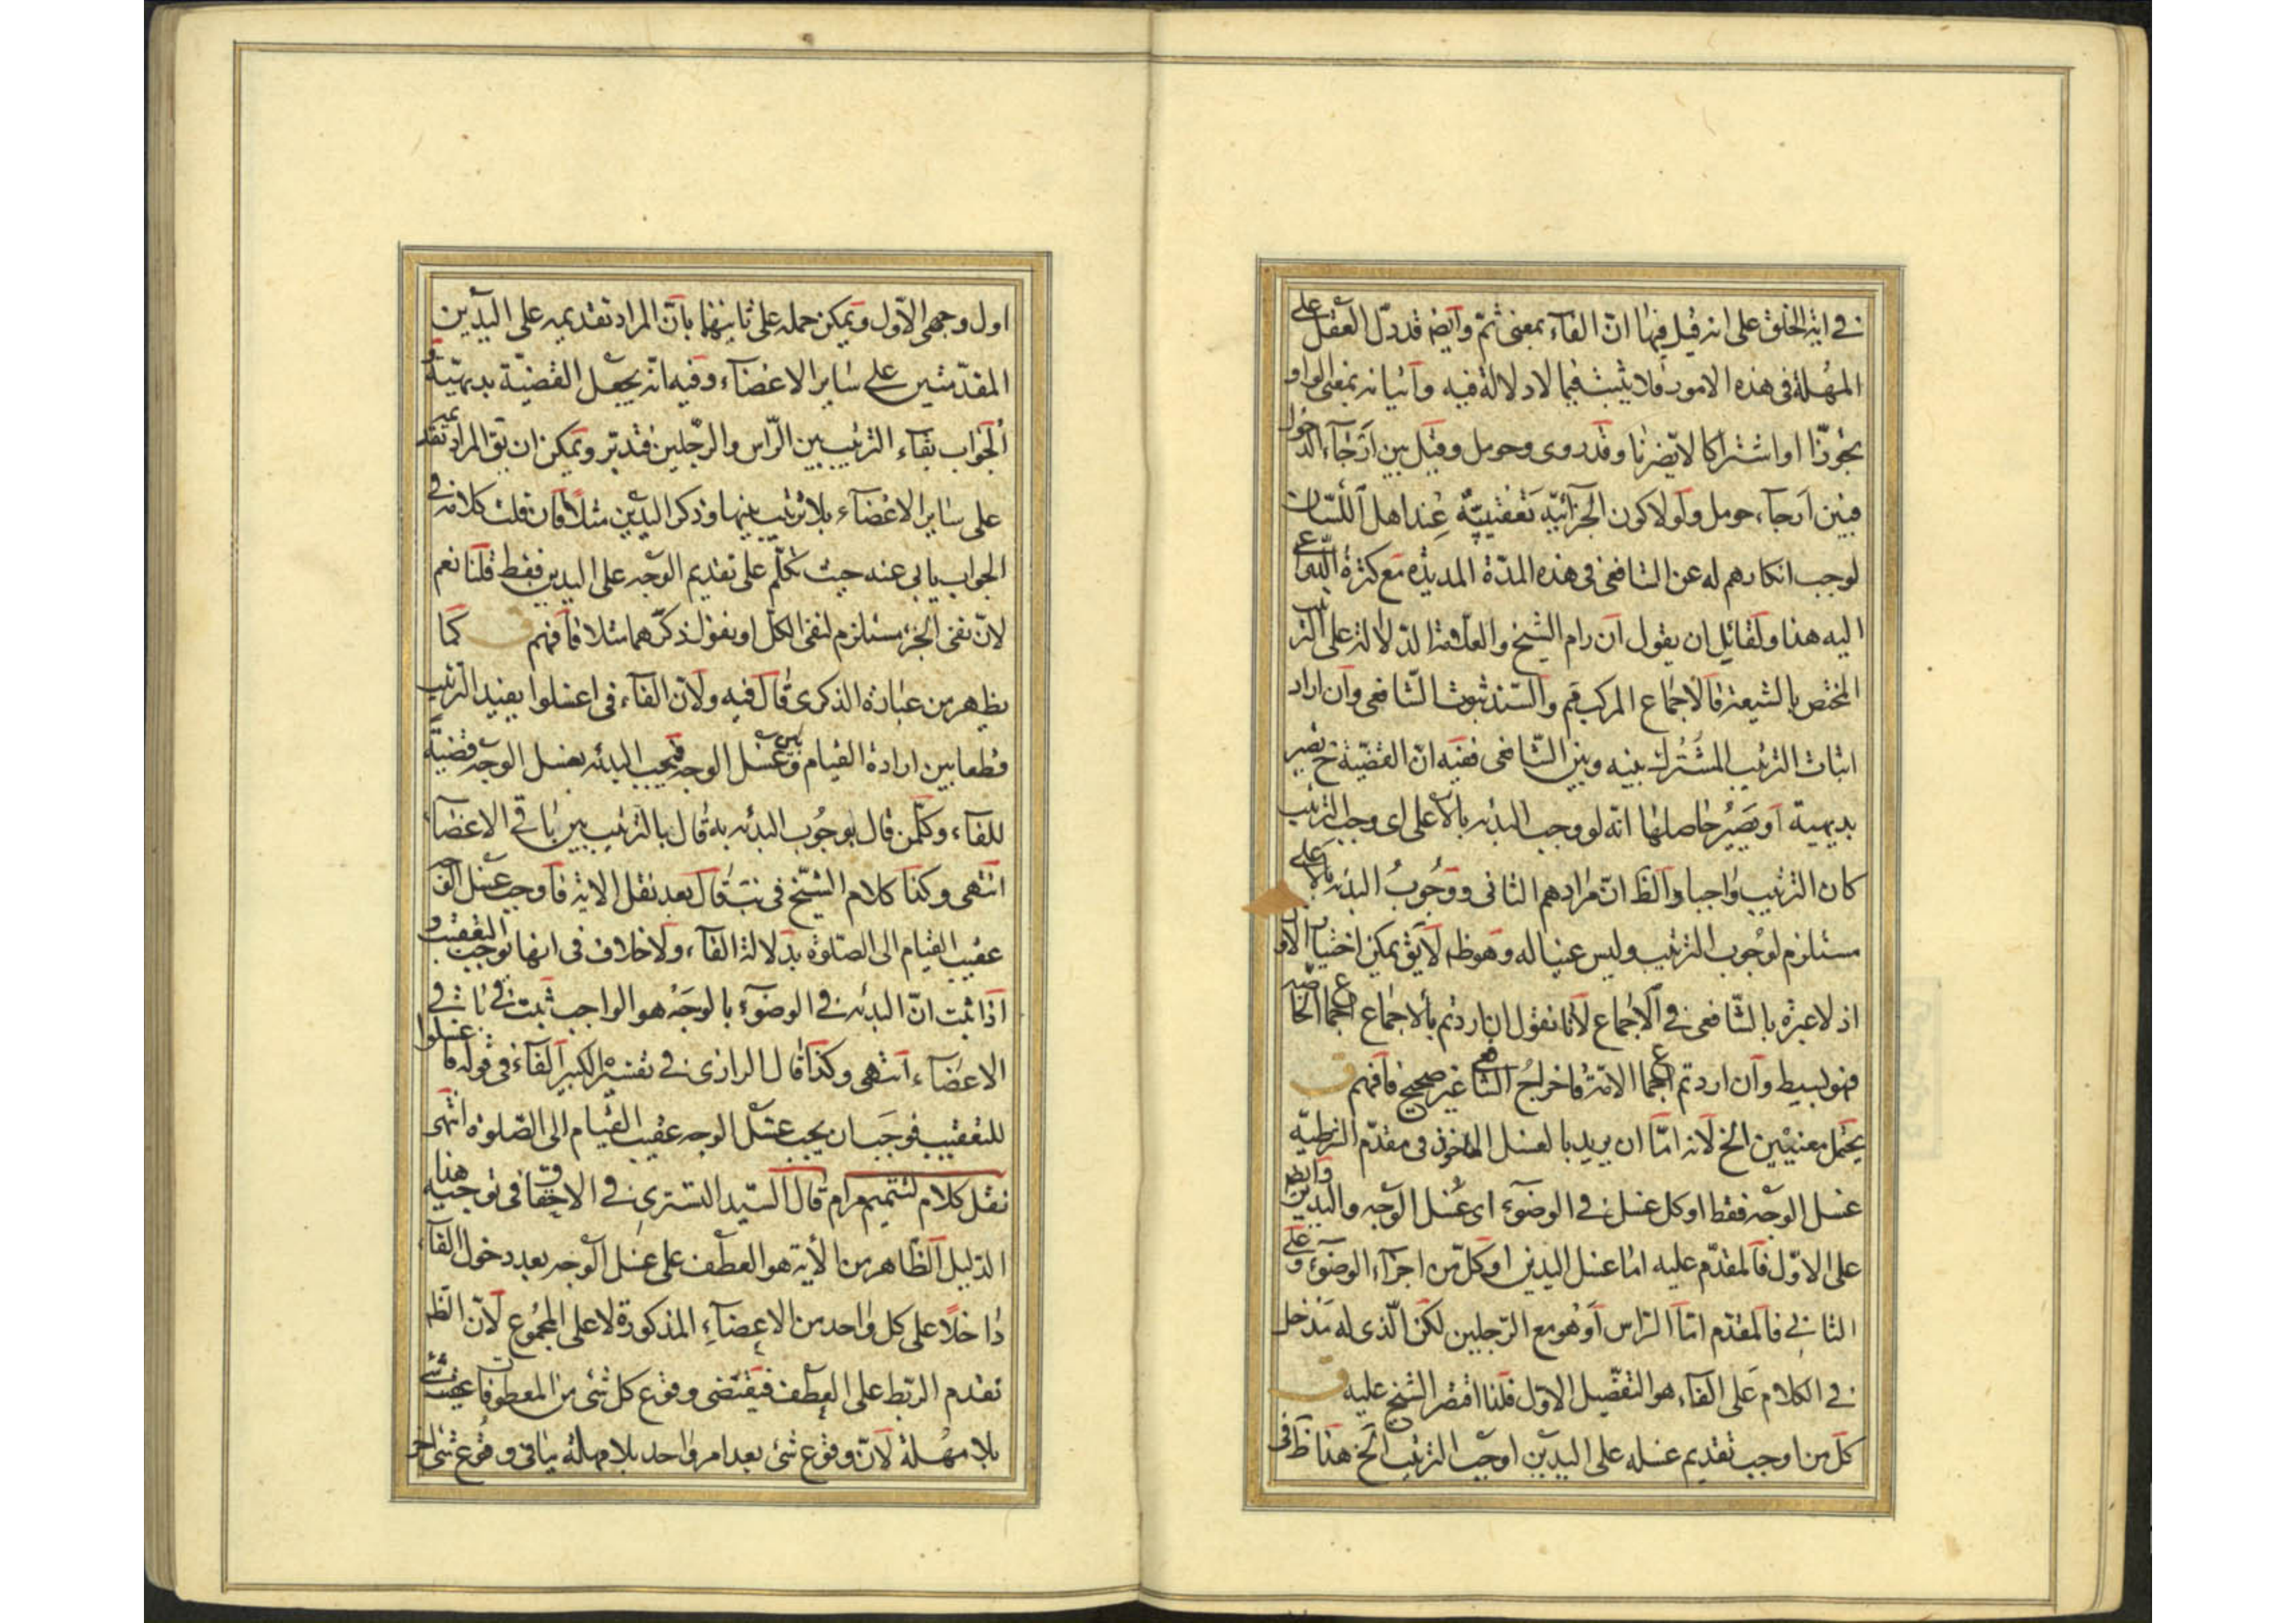 في اية الخلق على انه قيل فيها ان الفآء بمعنى ثم وايضه قد دل العقل على
المهلة في هذه الامور فلا يثبت فيما لا دلالة فيه واتيانه بمعنى الواو
تجوزا او اشتراكا لا يضرنا وقد روى وحومل وقيل بين ارجآء الدخول
فبين ارجآء حومل ولولا كون الجزائية تعقيبية عند اهل اللسان
لوجب انكارهم له عن الشافعى فى هذه المدة المديدة مع كثرة
اليه هذا ولقائل ان يقول ان رام الشيخ والعلامة الدلالة على الترتيب
المختص بالشيعة فالاجماع المركب قم والسند ثبوت الشافعى وان اراد
اثبات الترتيب المشترك بينه وبين الشافعى ففيه ان القضية ح تصير
بديهية او يصير حاصلها انه لو وجب البدئه بالاعلى اى وجب الترتيب
كان الترتيب واجبا والظ ان مرادهم الثانى ووجوب البدئه بالاعلى
مستلزم لوجوب الترتيب وليس عينا له وهو ظه لا يق يمكن اختيار الاول
اذ لا عبرة بالشافعى في الاجماع لانا نقول ان اردتم بالاجماع اجماع الخاصة
فهو بسيط وان اردتم اجماع الامة فاخراج الشافعى غير صحيح فافهم ق
يحتمل معنيين الخ لانه اما ان يريد بالغسل الماخوذ فى مقدم الشرطية
غسل الوجه فقط او كل غسل في الوضوء اى غسل الوجه واليدين
على الاول فالمقدم عليه اما غسل اليدين او كل من اجزآء الوضوء وعلى
الثاني فالمقدم اما الراس او هو مع الرجلين لكن الذى له مدخل
في الكلام على الفآء هو التفصيل الاول فلذا اقتصر الشيخ عليه ق
كل من اوجب تقديم غسله على اليدين اوجب الترتيب الخ هذا ظ فى
اول وجهى الاول ويمكن حمله على ثانيهما بان المراد تقديمه على اليدين
المقدمتين على ساير الاعضآء وفيه انه يجعل القضية بديهية و
الجواب بقآء الترتيب بين الراس والرجلين فتدبر ويمكن ان يق المراد تقديمه
على ساير الاعضآء بلا ترتيب بينها وذكر اليدين مثلا فان قلت كلامه في
الجواب يابى عنه حيث تكلم على تقديم الوجه على اليدين فقط قلنا نعم
لان نفى الجزء مستلزم لنفى الكل او نقول ذكرهما مثلا فافهم ق كما
يظهر من عبارة الذكرى قال فيه ولان الفآء فى اغسلوا يفيد الترتيب
قطعا بين ارادة القيام وبين غسل الوجه فيجب البدئه بغسل الوجه قضية
للفآء وكل من قال بوجوب البدئه به قال بالترتيب بين باقي الاعضآء
انتهى وكذا كلام الشيخ فى يب قال بعد نقل الاية فاوجب غسل الوجه
عقيب القيام الى الصلوة بدلالة الفآء ولا خلاف فى انها توجب التعقيب و
اذا ثبت ان البدئه في الوضوء بالوجه هو الواجب ثبت في باقي
الاعضآء انتهى وكذا قال الرازى في تفسيره الكبير الفآء فى قوله فاغسلوا
للتعقيب فوجب ان يجب غسل الوجه عقيب القيام الى الصلوة انتهى
نقل كلام لتتميم مرام قال السيد التسترى في الاحقاق فى توجيه هذا
الدليل الظاهر من الأية هو العطف على غسل الوجه بعد دخول الفآء
داخلا على كل واحد من الاعضآء المذكورة لا على المجموع لان الظ
تقدم الربط على العطف فيقتضى وقوع كل شئ من المعطوفات عقيب شئ
بلا مهلة لان وقوع شئ بعد امر واحد بلا مهلة ينافى وقوع شئ اخر